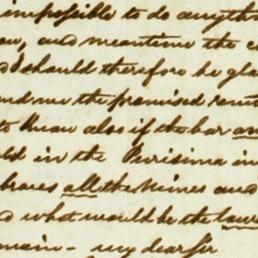 impossible to do anyth
and meantime the c
I should therefore be gla
me the promised
to know also if the bar an
in the Purisima in
braces all the mines and
what would be the law
main - my dear sir